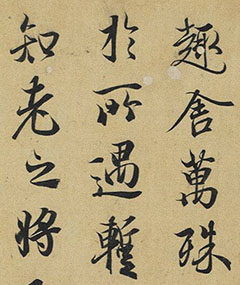 趣舍萬殊
於所遇蹔
知老之將